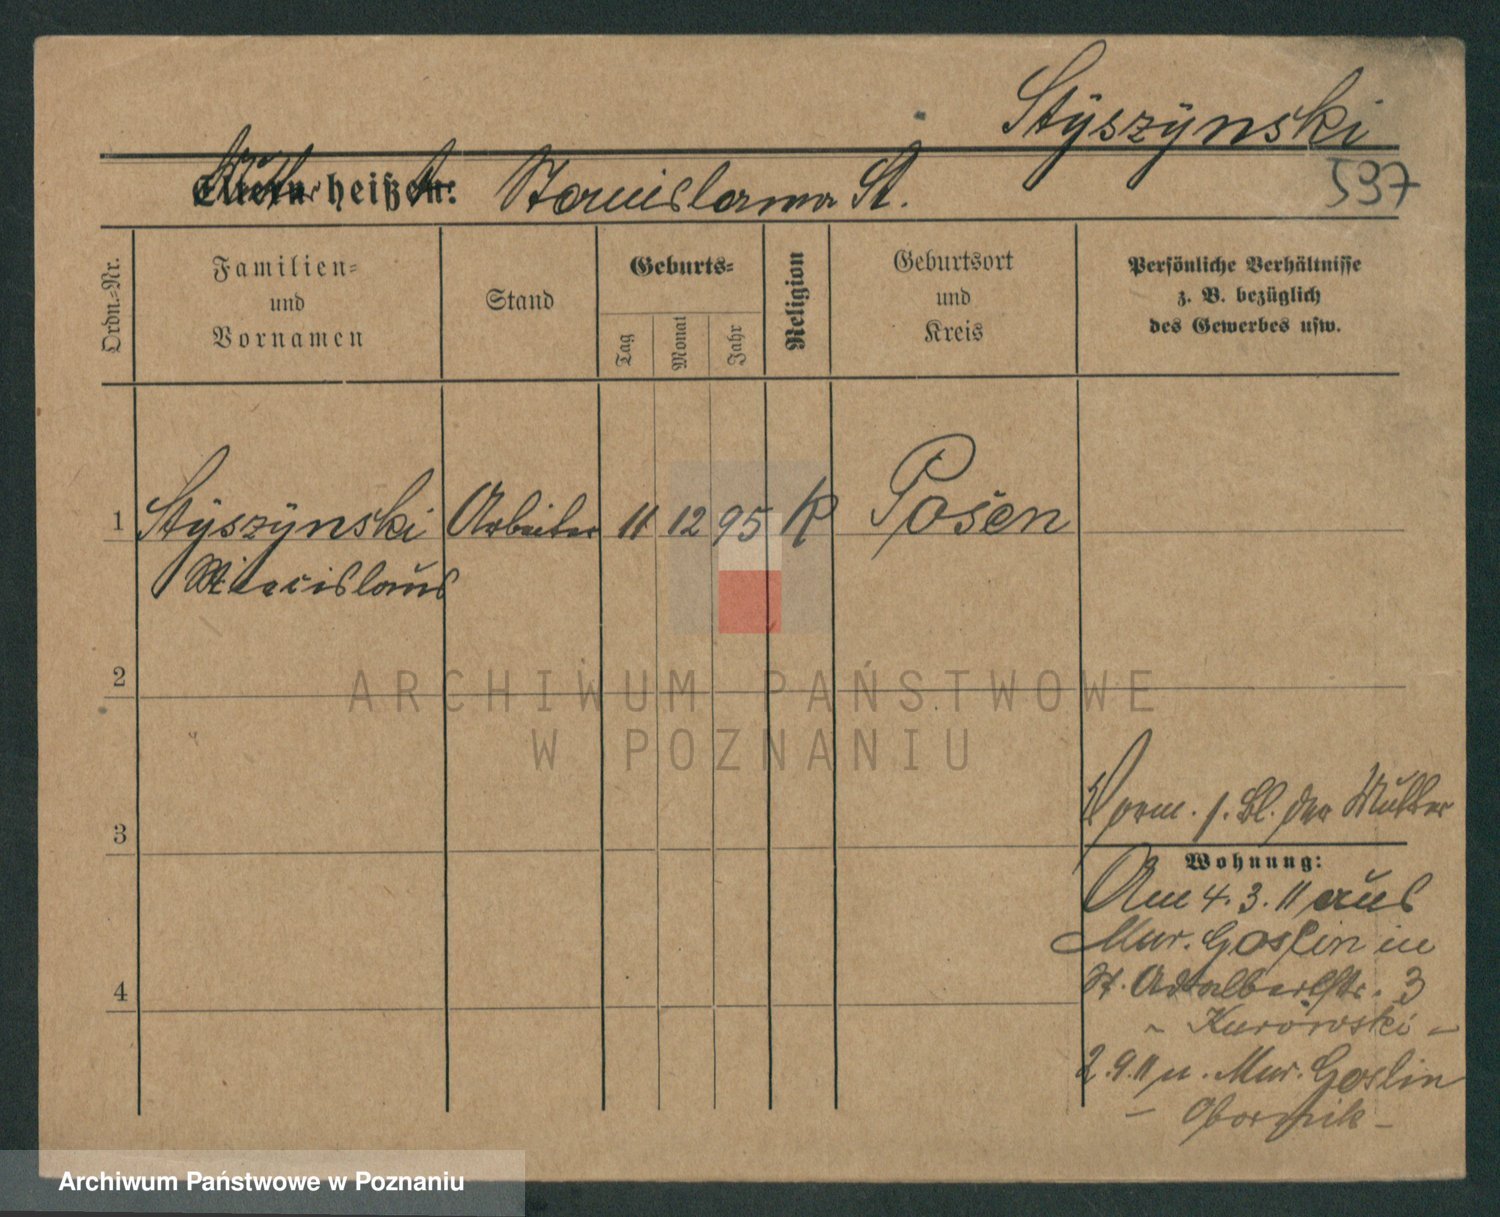 Styszynski
597
Eltern heißen: Stanislawa St.
Ordn.=Nr.
Familien=
und
Vornamen
Stand
Geburts=
Tag
Monat
Jahr
Religion
Geburtsort
und
Kreis
Persönliche Verhältnisse
z. B. bezüglich
des Gewerbes usw.
1 Styszynski Arbeiter 11 12 95 K Posen
2
ARCHIWUM PAŃSTWOWE
W POZNANIU
3
Vorm. s. Bl. der Mutter
Wohnung:
Am 4.3.11 aus
Mur. Goslin in
St. Adalbertstr. 3
- Kurowski -
2.9.11 n. Mur. Goslin
4
- Obornik -
Archiwum Państwowe w Poznaniu